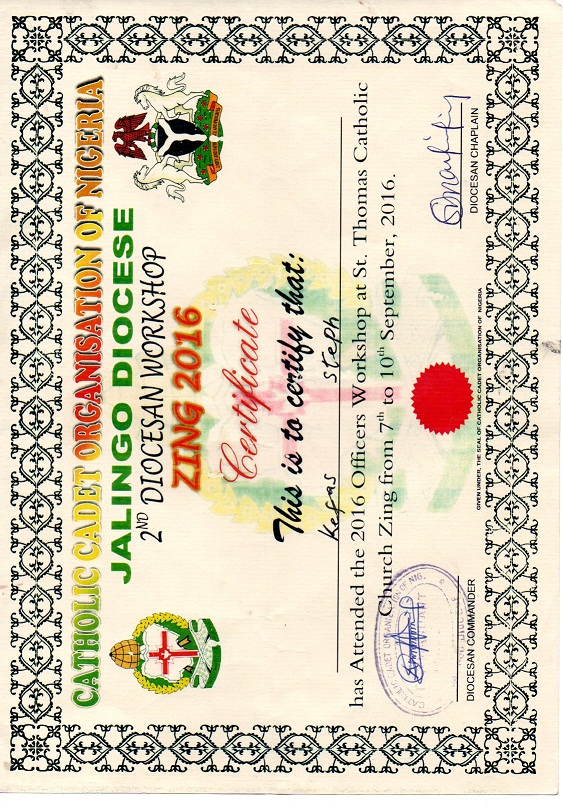 CATHOLIC CADET ORGANISATION OF NIGERIA
JALINGO DIOCESE
2ND DIOCESAN WORKSHOP
ZING 2016
Certificate
This is to certify that:
Kefas Steph
has Attended the 2016 Officers Workshop at St. Thomas Catholic
Church Zing from 7th to 10th September, 2016.
DIOCESAN COMMANDER
DIOCESAN CHAPLAIN
GIVEN UNDER, THE SEAL OF CATHOLIC CADET ORGANISATION OF NIGERIA
CATHOLIC CADET ORGANISATION OF NIG.